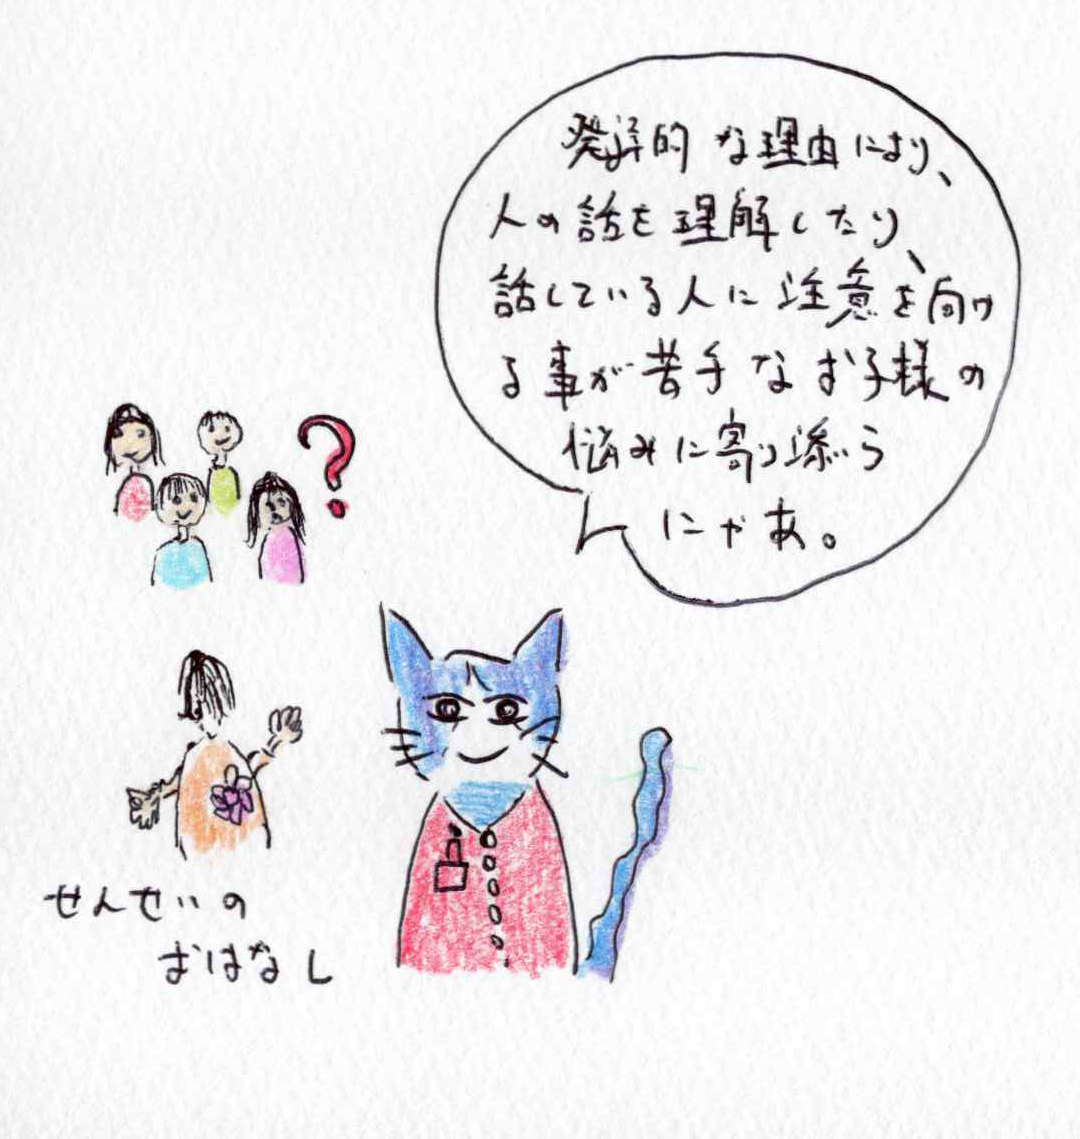 発達的な理由により、
人の話を理解したり、
話している人に注意を向け
る事が苦手なお子様の
悩みに寄り添う
にゃあ。
せんせいの
おはなし